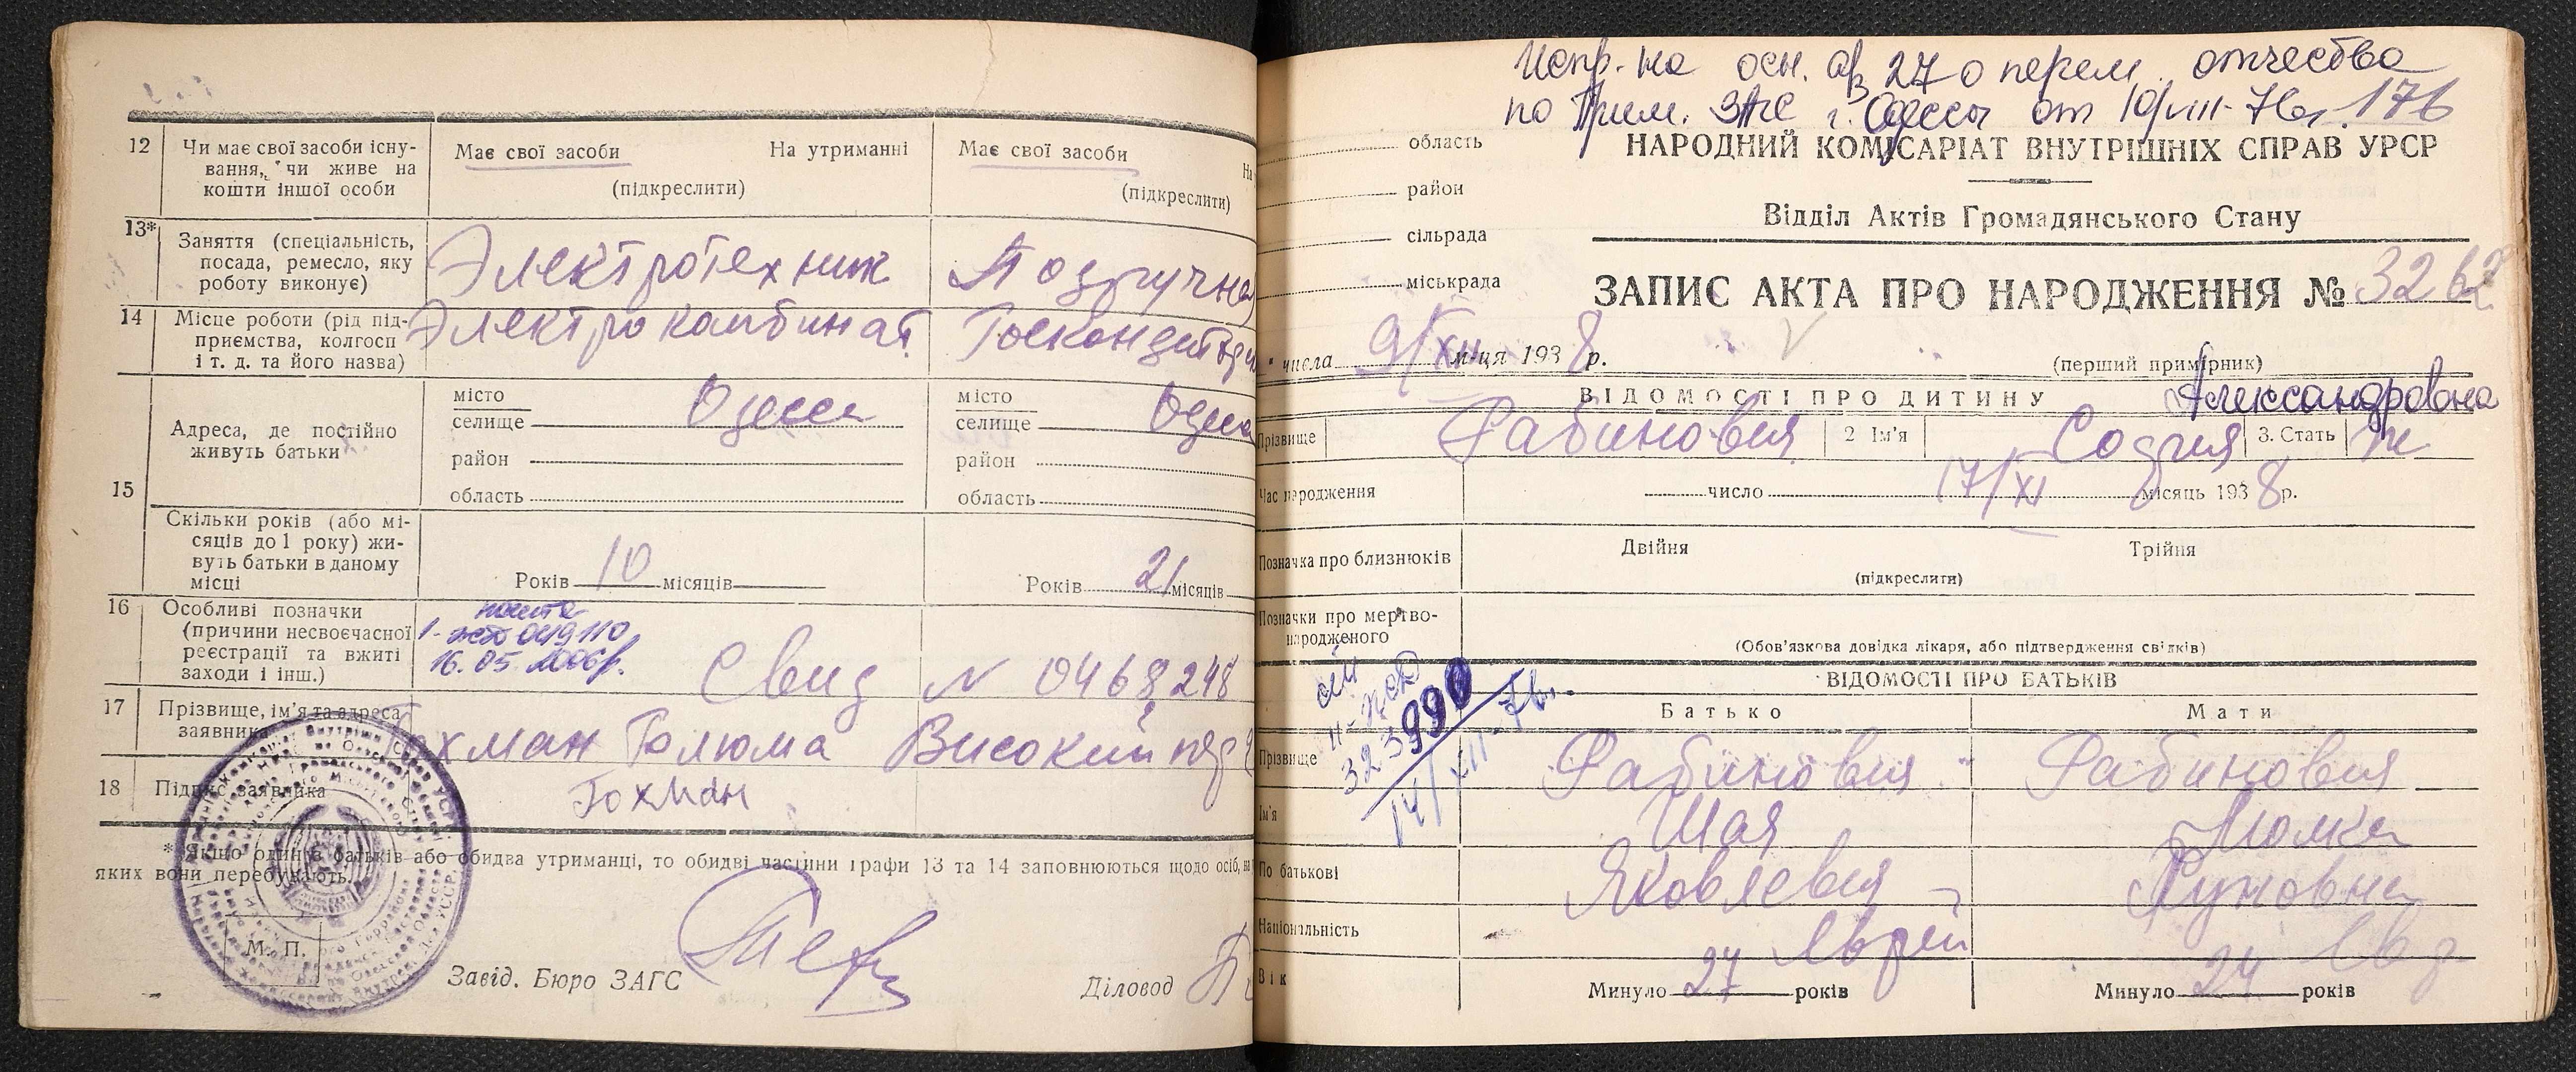 12 Чи має свої засоби існу-
вання, чи живе на
кошти іншої особи
Має свої засоби На утриманні
(підкреслити)
Має свої засоби
(підкреслити)
13* Заняття (спеціальність,
посада, ремесло, яку
роботу виконує)
Электротехник
14 Місце роботи (рід під-
приємства, колгосп
і т. д. та його назва)
Электрокомбинат
15 Адреса, де постійно
живуть батьки
місто
селище Одесса
район
область
місто
селище Одесса
район
область
Скільки років (або мі-
сяців до 1 року) жи-
вуть батьки в даному
місці
Років 10 місяців
Років 21 місяців
16 Особливі позначки
(причини несвоєчасної
реєстрації та вжиті
заходи і інш.)
049110
16.05.2006р.
Свид N 0468248
17 Прізвище, ім'я та адреса
заявника
Гохман Високий пер
18 Підпис заявника
Гохман
* Якщо один з батьків або обидва утриманці, то обидві частини графи 13 та 14 заповнюються щодо осіб, на
яких вони перебувають.
М. П.
Завід. Бюро ЗАГС
Діловод
Испр. на осн. 27 о перем. отчества
по Прим. ЗАГС г. Одессы от 10/VIII-76г. 176
область
район
сільрада
міськрада
НАРОДНИЙ КОМІСАРІАТ ВНУТРІШНІХ СПРАВ УРСР
Відділ Актів Громадянського Стану
ЗАПИС АКТА ПРО НАРОДЖЕННЯ № 3262
числа 9/XII м-ця 1938 р.
(перший примірник)
ВІДОМОСТІ ПРО ДИТИНУ
Александровна
Прізвище Рабинович 2 Ім'я София 3. Стать ж
Час народження
число 17/XI місяць 1938 р.
Позначка про близнюків
Двійня Трійня
(підкреслити)
Позначки про мертво-
народженого
(Обов'язкова довідка лікаря, або підтвердження свідків)
ВІДОМОСТІ ПРО БАТЬКІВ
323990
14/XII-76г.
Батько Мати
Прізвище Рабинович Рабинович
Ім'я Шая
По батькові Яковлевич
Національність Еврей Евр
Вік Минуло 27 років Минуло 24 років